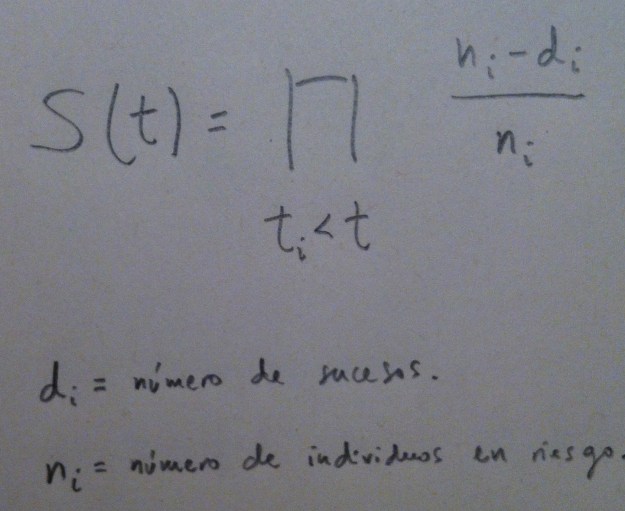 S(t) = ∏ (n_i - d_i) / n_i
t_i < t
d_i = número de sucesos.
n_i = número de individuos en riesgo.